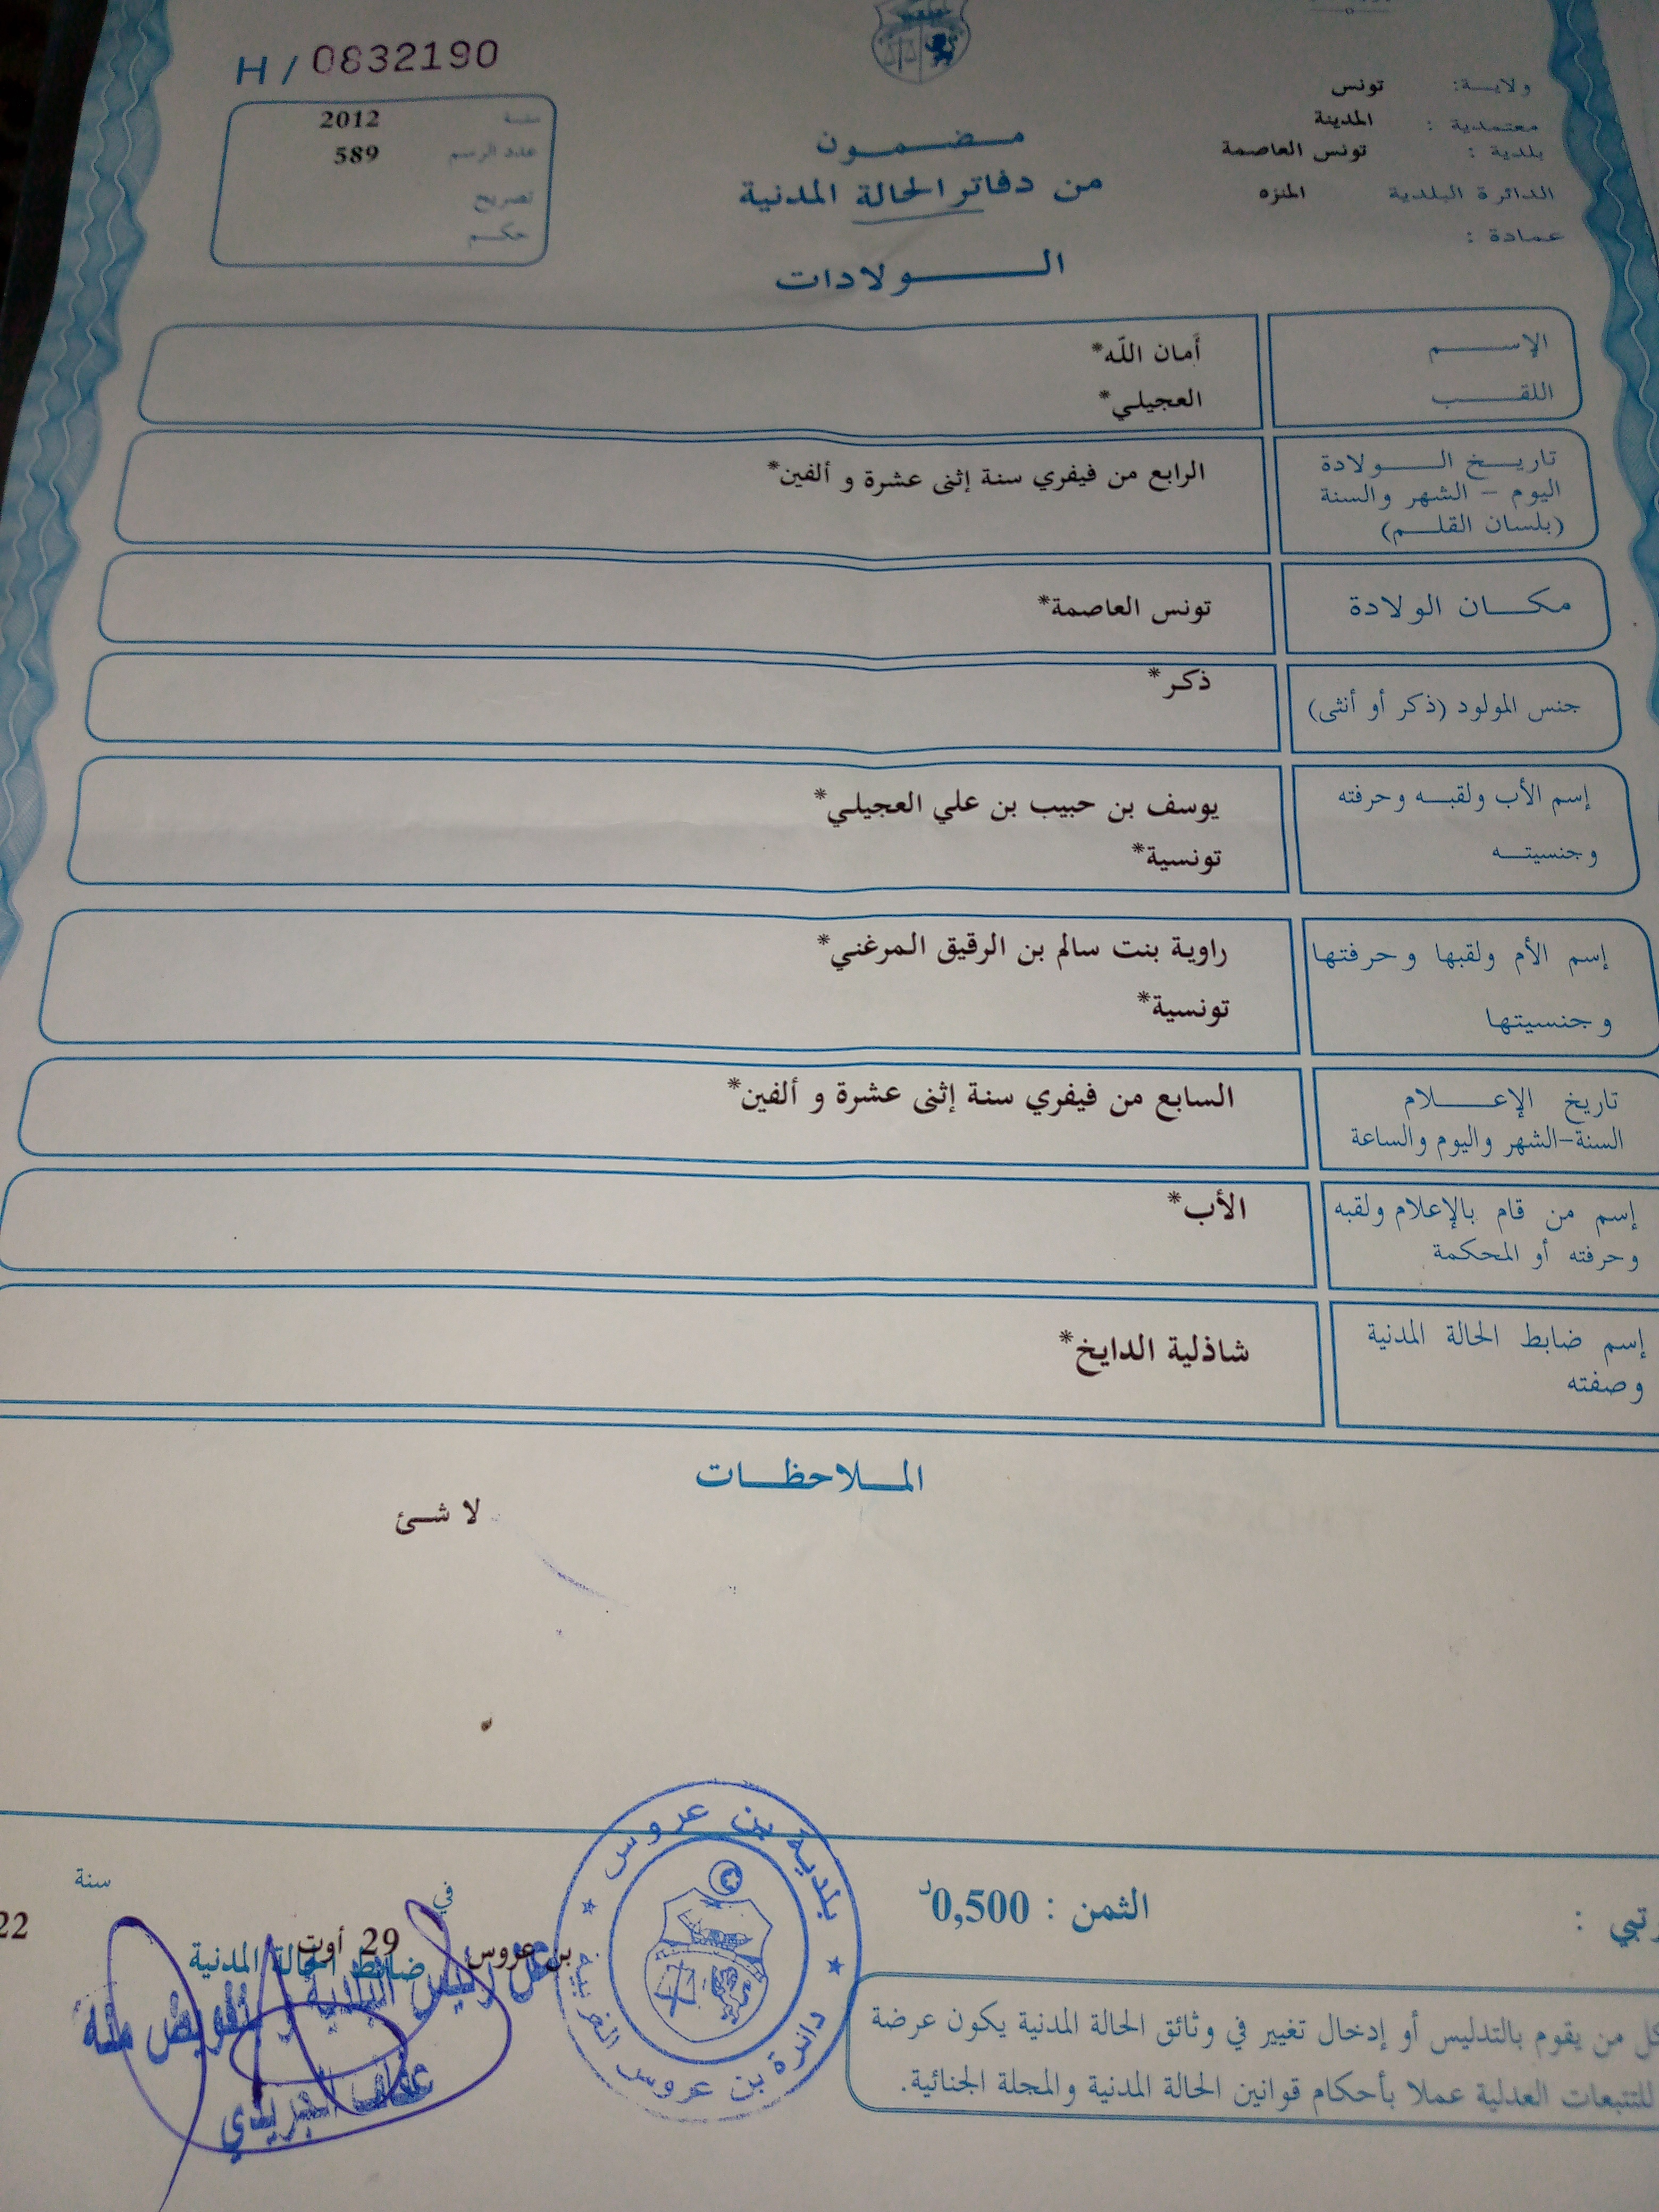 H / 0832190
ولايـــة: تونس
معتمدية : المدينة
بلدية : تونس العاصمة
الدائرة البلدية المنزه
عمادة :
سنة 2012
عدد الرسم 589
تصريح
حكم
مضمون
من دفاتر الحالة المدنية
الولادات
الإسم أمان اللّه*
اللقب العجيلي*
تاريخ الولادة الرابع من فيفري سنة إثنى عشرة و ألفين*
اليوم - الشهر والسنة
(بلسان القلم)
مكان الولادة تونس العاصمة*
جنس المولود (ذكر أو أنثى) ذكر*
إسم الأب ولقبه وحرفته يوسف بن حبيب بن علي العجيلي*
وجنسيته تونسية*
إسم الأم ولقبها وحرفتها راوية بنت سالم بن الرقيق المرغني*
وجنسيتها تونسية*
تاريخ الإعلام السابع من فيفري سنة إثنى عشرة و ألفين*
السنة-الشهر واليوم والساعة
إسم من قام بالإعلام ولقبه الأب*
وحرفته أو المحكمة
إسم ضابط الحالة المدنية شاذلية الدايخ*
وصفته
الملاحظات
لا شئ
الثمن : 0,500د
بن عروس في 29 أوت سنة 22
ضابط الحالة المدنية
رئيس البلدية و تفويض منه
بلدية بن عروس
دائرة بن عروس الغربية
كل من يقوم بالتدليس أو إدخال تغيير في وثائق الحالة المدنية يكون عرضة
للتتبعات العدلية عملا بأحكام قوانين الحالة المدنية والمجلة الجنائية.